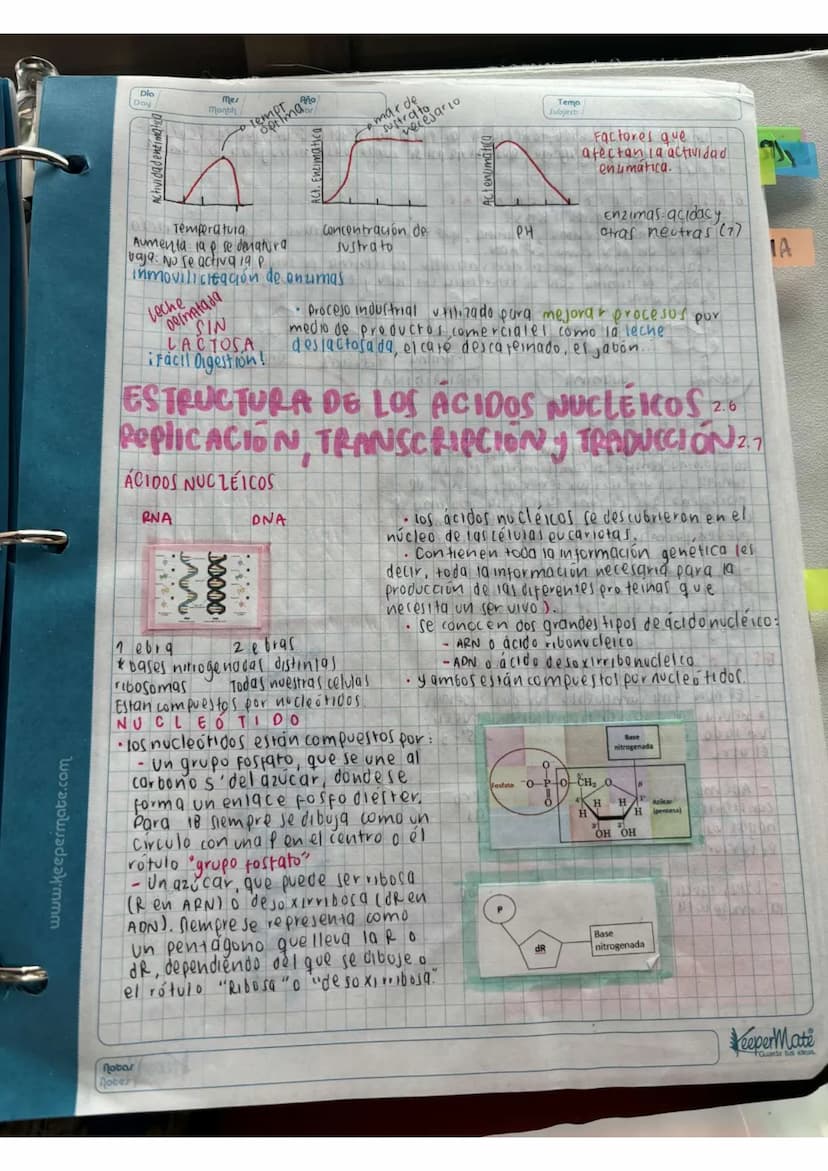 Día
Day
Mes
Month
Año
Tema
Subject
tempt
óptima
mar de
sustrato
necesario
Actividad enzimática
Act. Enzimática
Act enzimática
Factores que
afectan la actividad
enzimática.
Temperatura
Aumenta: la p se dnatura
baja: No se activa la p.
concentración de
sustrato
PH
enzimas acidas y
otras neutras (7)
inmovilización de enzimas
Leche
Deslactada
SIN
LACTOSA
¡Fácil Digestión!
• Proceso industrial utilizado para mejorar procesos por
medio de productos comerciales como la leche
deslactosada, el café descafeinado, el jabón...
ESTRUCTURA DE LOS ÁCIDOS NUCLÉICOS 2.6
REPLICACIÓN, TRANSCRIPCIÓN y TRADUCCIÓN 2.7
ÁCIDOS NUCLÉICOS
RNA DNA
1 ebra 2 ebras
* bases nitrogenadas distintas
ribosomas Todas nuestras células
Estan compuestos por nucleótidos
• los ácidos nucléicos se descubrieron en el
núcleo de las células eucariotas.
• Contienen toda la información genética (es
decir, toda la información necesaria para la
producción de las diferentes proteinas que
necesita un ser vivo).
• se conocen dos grandes tipos de ácido nucléico:
- ARN o ácido ribonucleico
- ADN o ácido desoxirribonucleico
• y ambos están compuestos por nucleótidos.
NUCLEÓTIDO
• los nucleótidos están compuestos por:
- un grupo fosfato, que se une al
carbono 5' del azúcar, donde se
forma un enlace fosfo diester.
Para IB siempre se dibuja como un
círculo con una P en el centro o él
rótulo "grupo fosfato"
- Un azúcar, que puede ser ribosa
(R en ARN) o desoxirribosa (dR en
ADN). Siempre se representa como
un pentágono que lleva la R o
dR, dependiendo del que se dibuje o
el rótulo "Ribosa" o "desoxirribosa"
Base
nitrogenada
Fosfato
O
O-P-O-CH₂ O
O
H H
H H
OH OH
Azúcar
(pentosa)
P
dR
Base
nitrogenada
www.keepermate.com
Notas
Notes
KeeperMate
Guarda tus ideas.